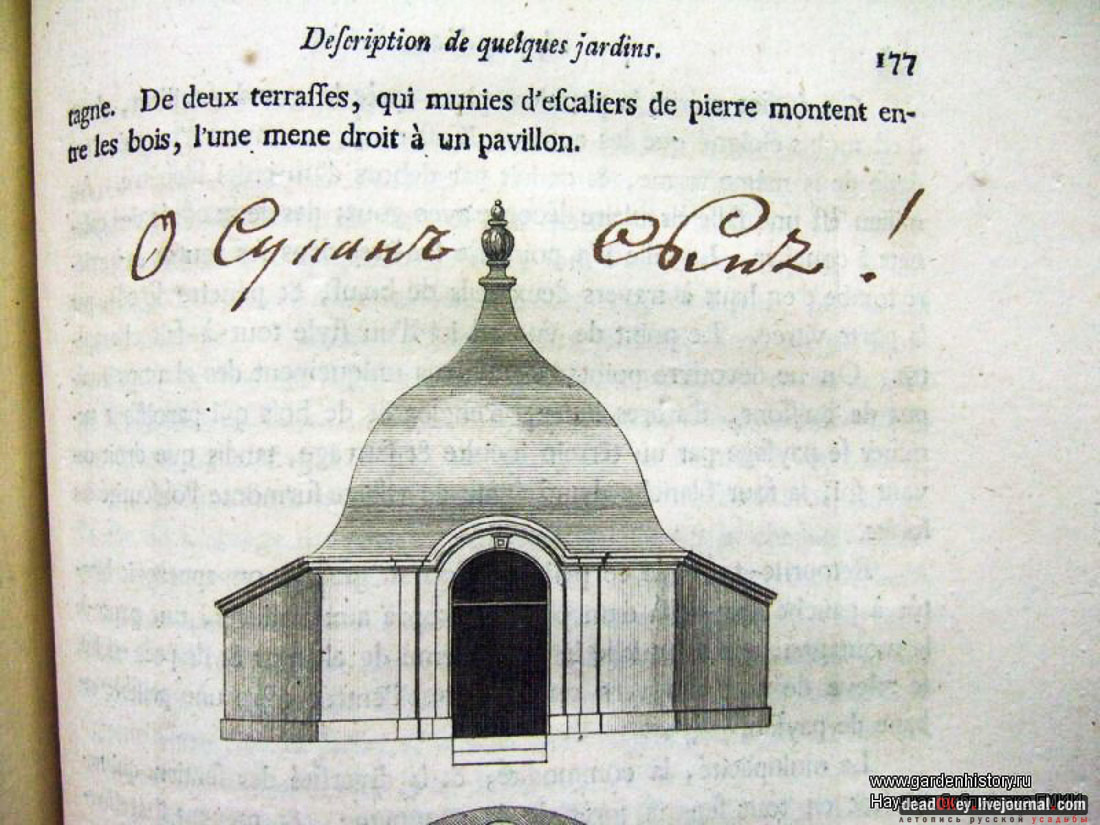 Deſcription de quelques jardins.
177
tagne. De deux terraſſes, qui munies d'eſcaliers de pierre montent en-
tre les bois, l'une mene droit à un pavillon.
О Сукинъ Сынъ!
www.gardenhistory.ru
летопись русской усадьбы